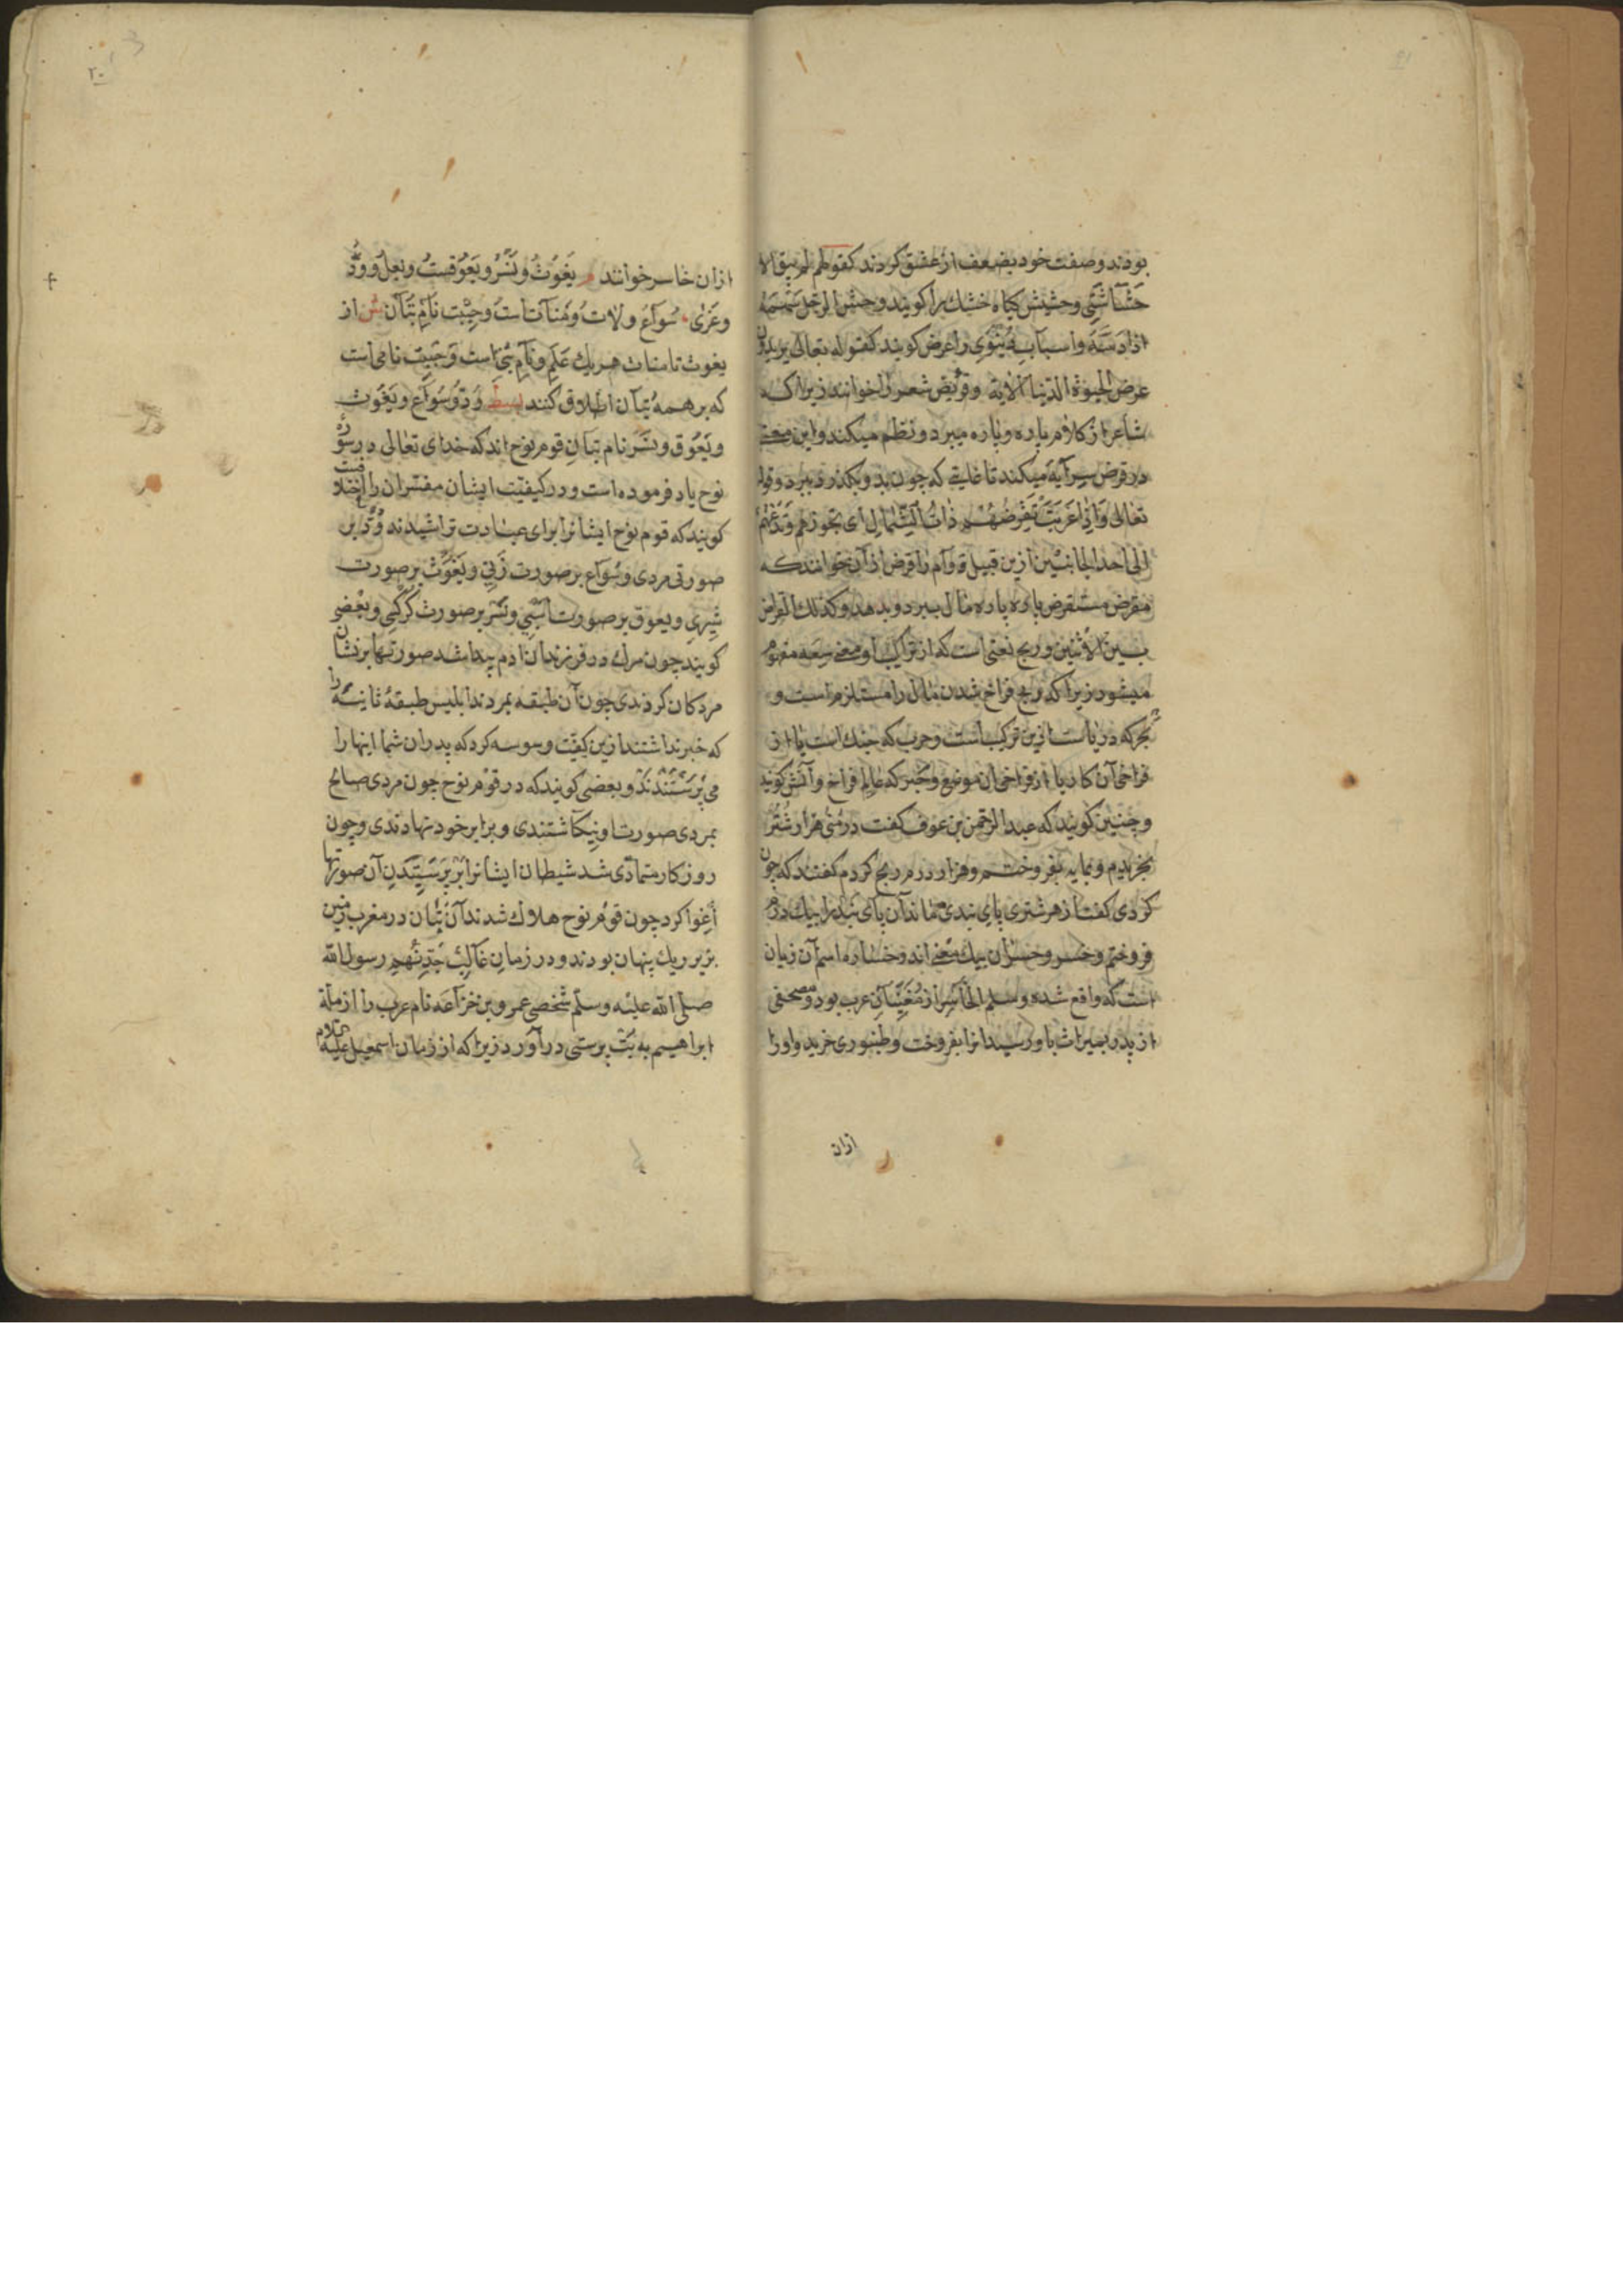 بودند و صفت خود بضعف از عشق کردند کقولهم لم یبق الا
حشاشتی و حشیش کیاه خشک را کویند و حش الرجل سهمه
عرض الحیوة الدنیا الآیة و قریض شعر را خوانند زیرا که
شاعر از کلام پاره پاره میبرد و نظم میکند و این معنی
در قرض سرایة میکند تا غایتی که چون بد و بکذرد ببرد و قوله
تعالی و اذا غربت تقرضهم ذات الشمال ای تجوزهم و تدعهم
الی احد الجانبین ازین قبیل و وام را قرض از آن خوانند که
مقرض مستقرض پاره پاره مال ببرد و بدهد و کذلک القراض
بین الاثنین و ربح نعتی است که از تراکیب او معنی سعه مفهوم
میشود زیرا که ربح فراخ شدن مال را مستلزم است و
بحر که دریاست ازین ترکیب است و حرب که جنک است یا از
فراخی آن کار یا از فراخی آن موضع و حبر که عالم فراخ دانش کویند
و چنین کویند که عبد الرحمن بن عوف کفت در منی هزار شتر
بخریدم و بمایه بفروختم و هزار درم ربح کردم کفتند که چون
کردی کفت از هر شتری پای بندی بماند آن پای بند را بیک درم
فروختم و خسر و خسران بیک معنی اند و خساره اسم آن زیان
است که واقع شده و سلم الخاسر از مغنیان عرب بود و مصحفی
از پدر بمیراث باو رسید آنرا بفروخت و طنبوری خرید و او را
ازان
۲۰
ازان خاسر خوانند م یغوث و نسر و یعوقست و بعل و ود
و عزی سواع و لات و منات است و جبت نام بتان ش از
یغوث تا منات هر یک علم و نام بتی است و جبت نامی است
که بر همه بتان اطلاق کنند بسط ود و سواع و یغوث
و یعوق و نسر نام بتان قوم نوح اند که خدای تعالی در سوره
نوح یاد فرموده است و در کیفیت ایشان مفسران را اختلافست
کویند که قوم نوح ایشانرا برای عبادت تراشیدند ود بر
صورتی مردی و سواع بر صورت زنی و یغوث بر صورت
شیری و یعوق بر صورت اسبی و نسر بر صورت کرکسی و بعضی
کویند چون مرک در فرزندان ادم پیدا شد صورتها بر نشان
مردکان کردندی چون آن طبقه بمردند ابلیس طبقۀ ثانیه را
که خبر نداشتند ازین کیفیت وسوسه کرد که پدران شما اینها را
می پرستندند و بعضی کویند که در قوم نوح چون مردی صالح
بمردی صورت او نیکاشتندی و برابر خود نهادندی و چون
روزکار متمادی شد شیطان ایشانرا بر پرستیدن آن صورتها
اغوا کرد چون قوم نوح هلاک شدند آن بتان در مغرب زمین
بزیر ریک پنهان بودند و در زمان غالب جد نهم رسول الله
صلی الله علیه و سلم شخصی عمرو بن خزاعه نام عرب را از ملة
ابراهیم به بت پرستی درآورد زیرا که از زمان اسمعیل علیه السلام